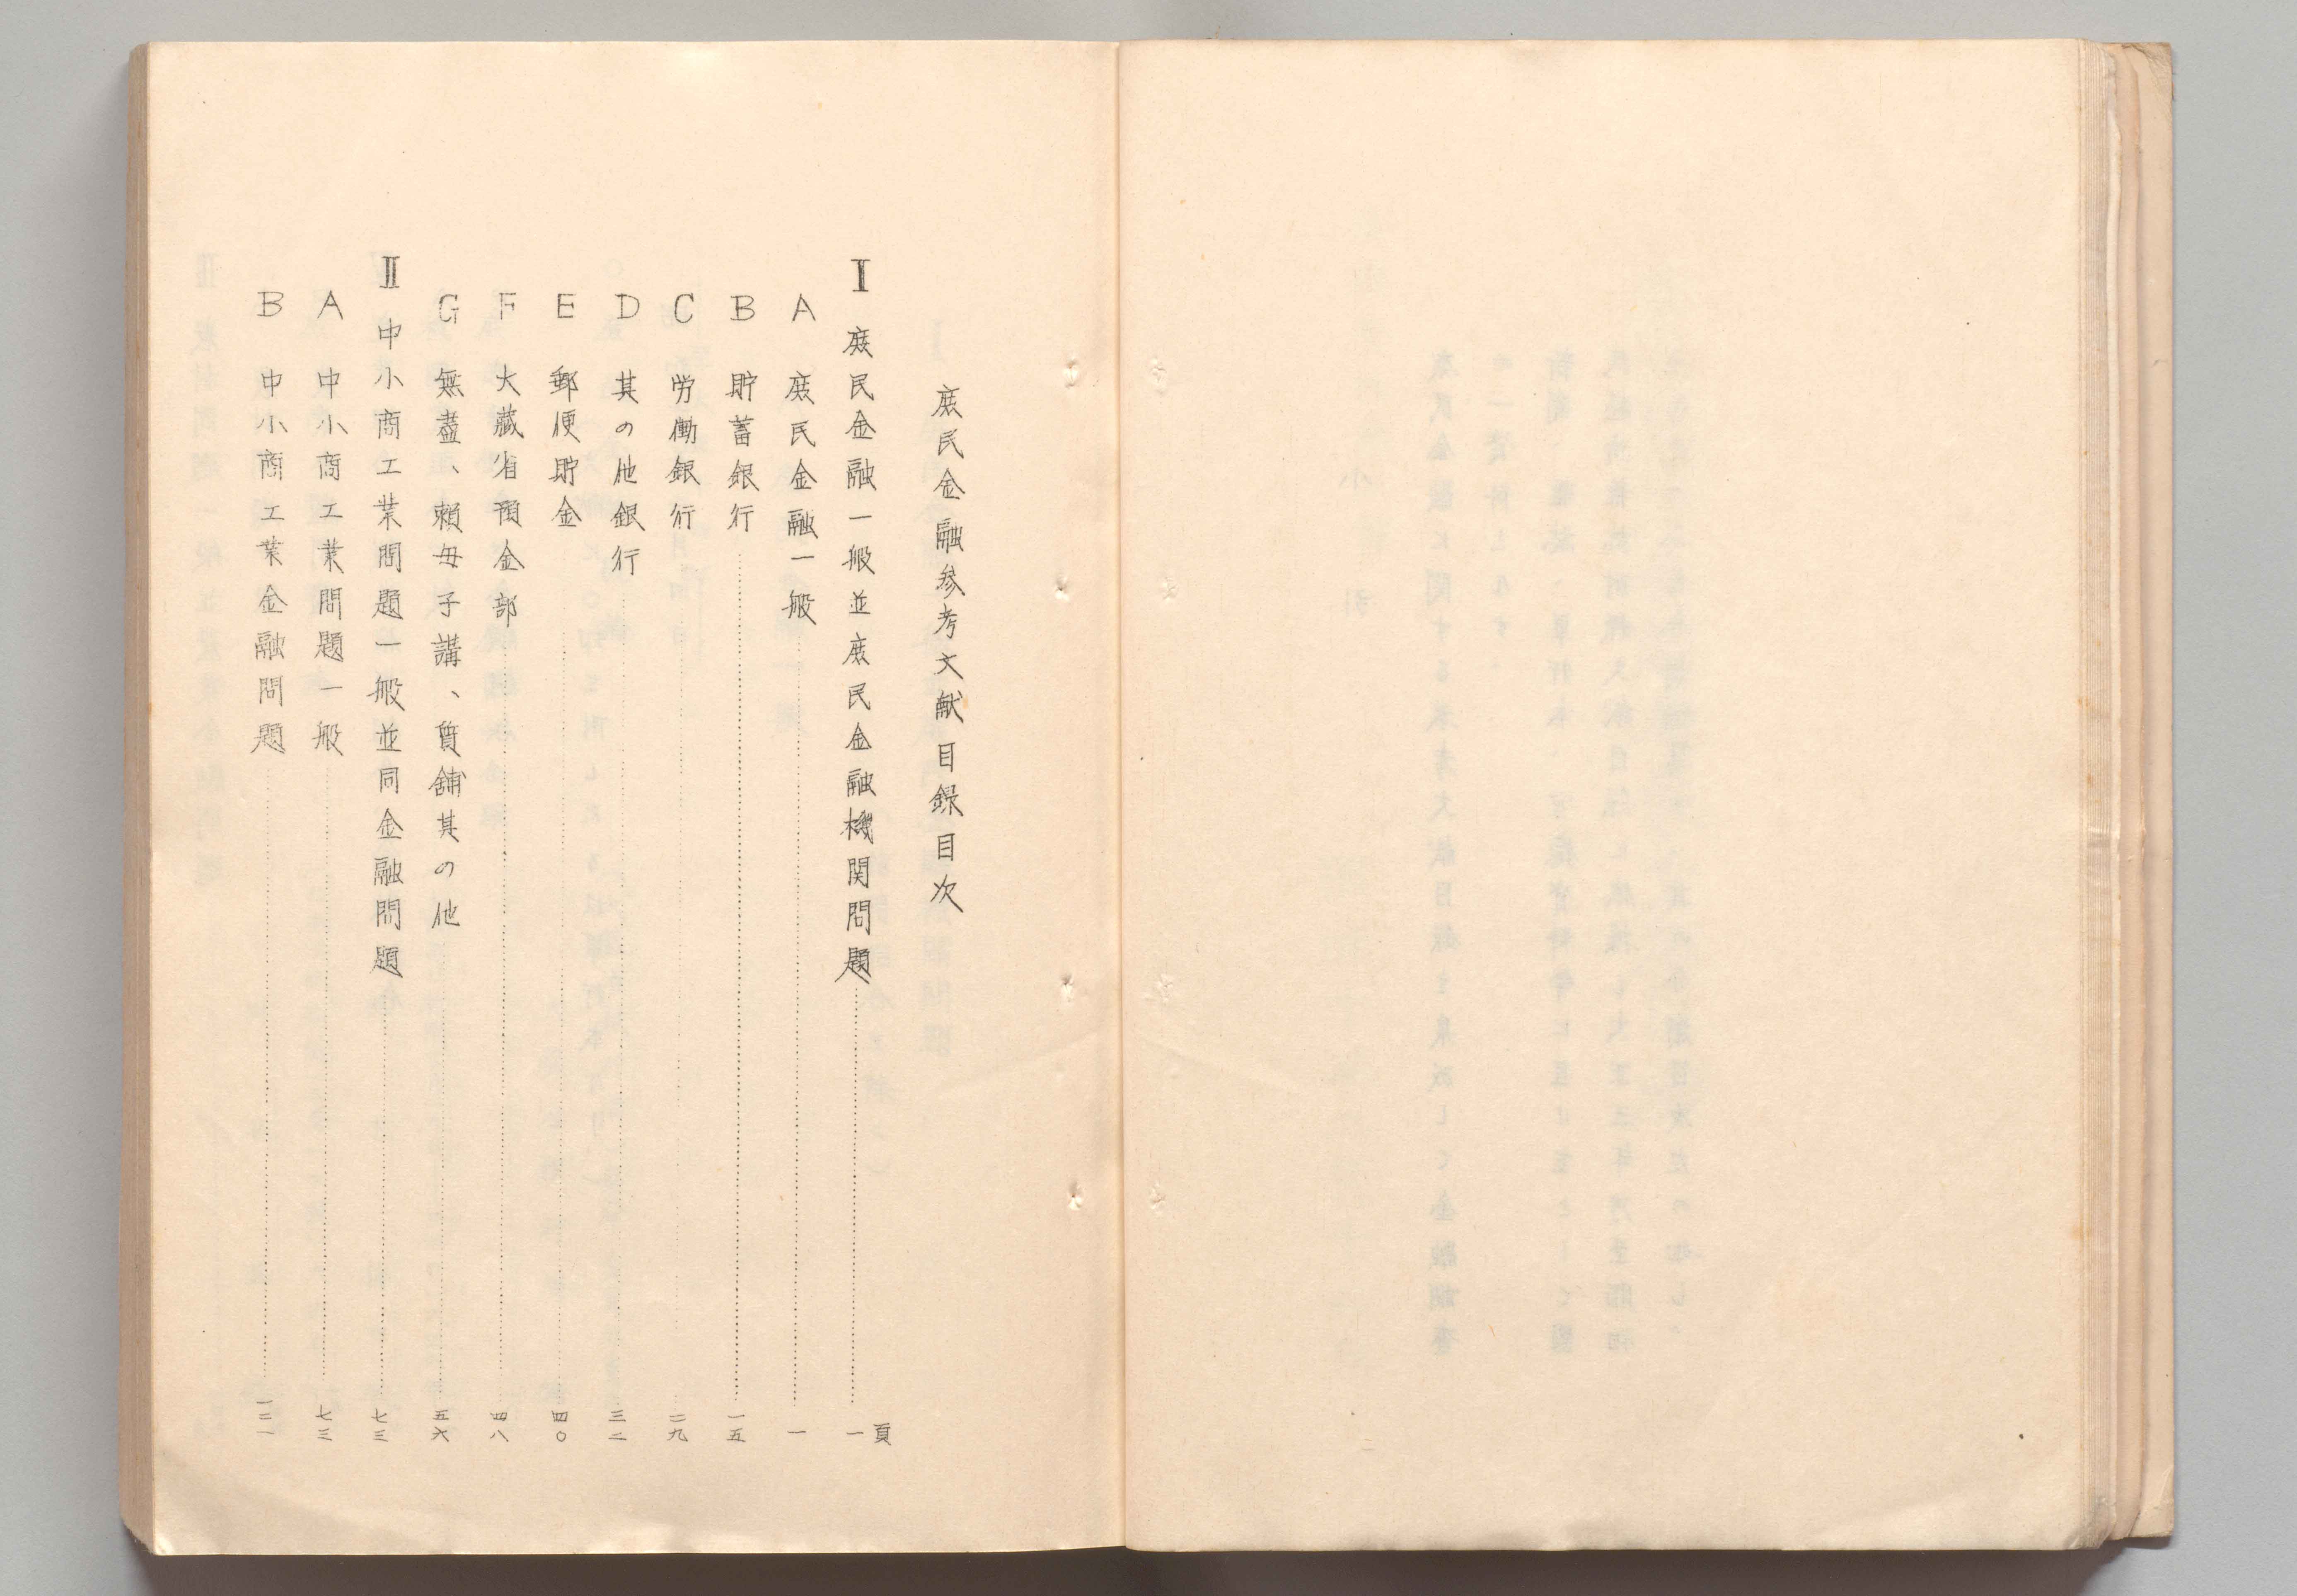 庶民金融参考文献目録目次
頁
Ⅰ 庶民金融一般並庶民金融機関問題……一
A 庶民金融一般……一
B 貯蓄銀行……一五
C 労働銀行……二九
D 其の他銀行……三二
E 郵便貯金……四〇
F 大蔵省預金部……四八
G 無盡、頼母子講、質舗其の他……五六
Ⅱ 中小商工業問題一般並同金融問題……七三
A 中小商工業問題一般……七三
B 中小商工業金融問題……一二一